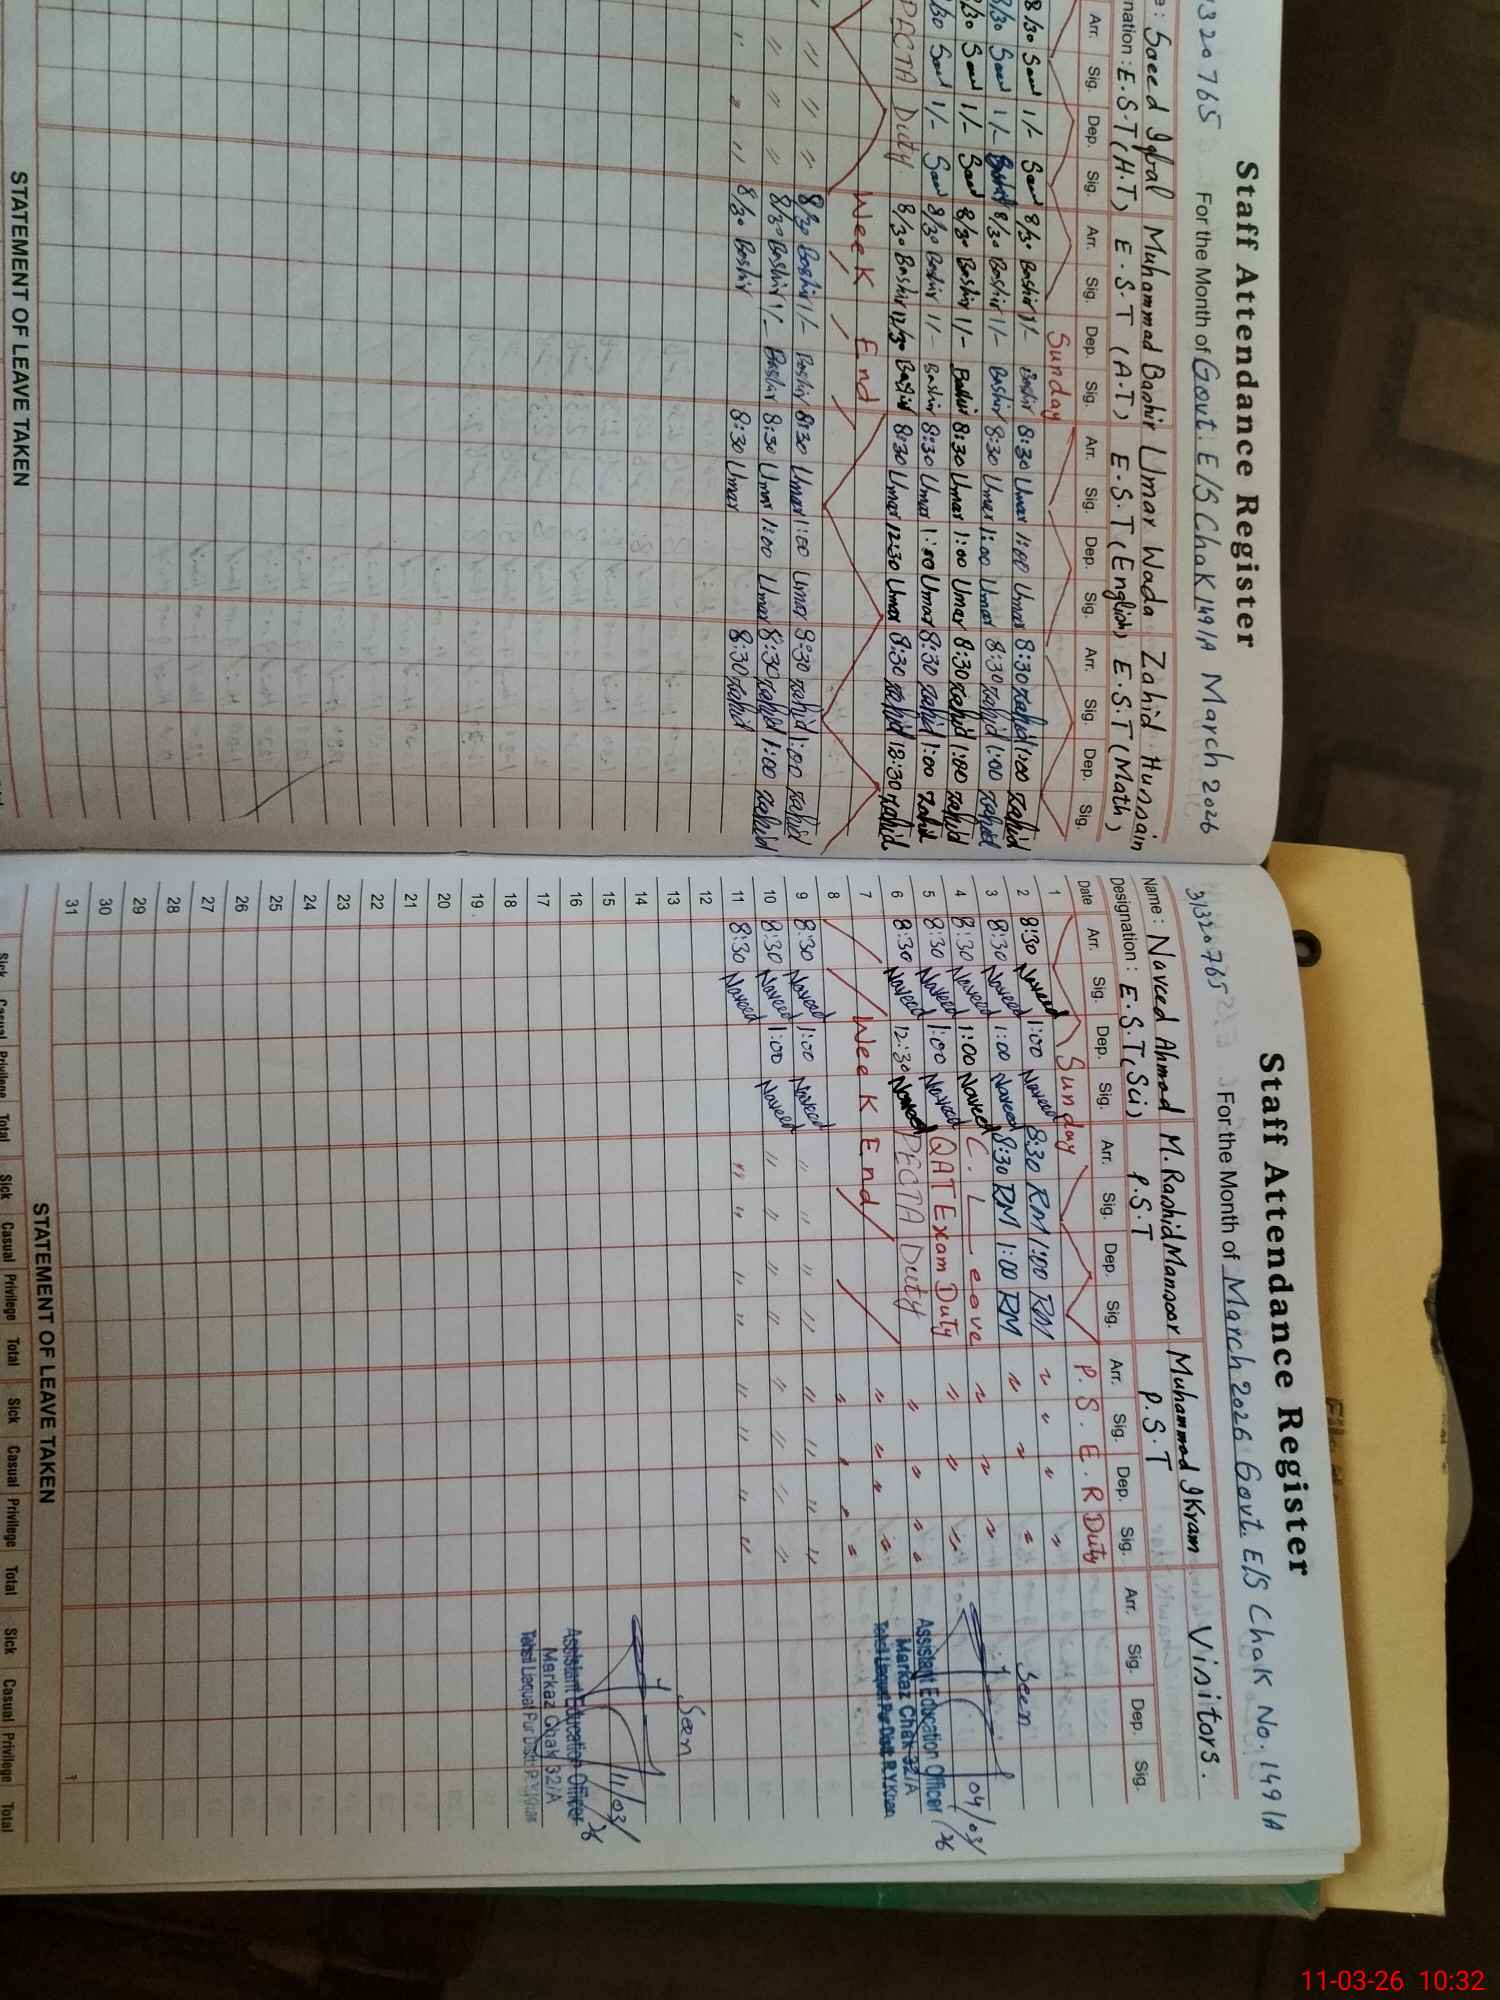 Staff Attendance Register
320765 For the Month of Govt. E/S Chak 149/A March 2026
e : Saeed Iqbal Muhammad Bashir Umar Wada Zahid Hussain
nation : E.S.T (H.T) E.S.T (A.T) E.S.T (English) E.S.T (Math)
Arr. Sig. Dep. Sig. Arr. Sig. Dep. Sig. Arr. Sig. Dep. Sig. Arr. Sig. Dep. Sig.
Sunday
8/30 Saed 1/- Saed 8/30 Bashir 1/- Bashir 8:30 Umar 1:00 Umar 8:30 Zahid 1:00 Zahid
8/30 Saed 1/- 8/30 Bashir 1/- Bashir 8:30 Umar 1:00 Umar 8:30 Zahid 1:00 Zahid
8/30 Saed 1/- Saed 8/30 Bashir 1/- Bashir 8:30 Umar 1:00 Umar 8:30 Zahid 1:00 Zahid
8/30 Saed 1/- Saed 8/30 Bashir 1/- Bashir 8:30 Umar 1:00 Umar 8:30 Zahid 1:00 Zahid
PECTA Duty 8/30 Bashir 12/30 Bashir 8:30 Umar 12:30 Umar 8:30 Zahid 12:30 Zahid
Week End
" " " 8/30 Bashir 1/- Bashir 8:30 Umar 1:00 Umar 8:30 Zahid 1:00 Zahid
" " " 8/30 Bashir 1/- Bashir 8:30 Umar 1:00 Umar 8:30 Zahid 1:00 Zahid
" " " 8/30 Bashir 8:30 Umar 8:30 Zahid
STATEMENT OF LEAVE TAKEN
Staff Attendance Register
31320765 For the Month of March 2026 Govt. E/S Chak No. 149/A
Name : Naveed Ahmad M. Rashid Manzoor Muhammad Ikram Visitors.
Designation : E.S.T (Sci) P.S.T P.S.T
Date Arr. Sig. Dep. Sig. Arr. Sig. Dep. Sig. Arr. Sig. Dep. Sig. Arr. Sig. Dep. Sig.
1 Sunday P.S.E.R Duty
2 8:30 Naveed 1:00 Naveed 8:30 RM 1:00 RM " " " "
3 8:30 Naveed 1:00 Naveed 8:30 RM 1:00 RM " " " Seen
4 8:30 Naveed 1:00 Naveed C. Leave " " " 04/03/26
5 8:30 Naveed 1:00 Naveed QAT Exam Duty " " " Assistant Education Officer
6 8:30 Naveed 12:30 Naveed PECTA Duty " " " Markaz Chak 32/A
Tehsil Liaquat Pur Distt. R.Y.Khan
7 Week End " " " "
8 " " " "
9 8:30 Naveed 1:00 Naveed " " " " " "
10 8:30 Naveed 1:00 Naveed " " " " " " " "
11 8:30 Naveed " " " " " " " "
12
13 Seen
14
15 11/03/26
16 Assistant Education Officer
17 Markaz Chak 32/A
Tehsil Liaquat Pur Distt. R.Y.Khan
18
19
20
21
22
23
24
25
26
27
28
29
30
31
STATEMENT OF LEAVE TAKEN
Sick Casual Privilege Total Sick Casual Privilege Total Sick Casual Privilege Total Sick Casual Privilege Total
11-03-26 10:32